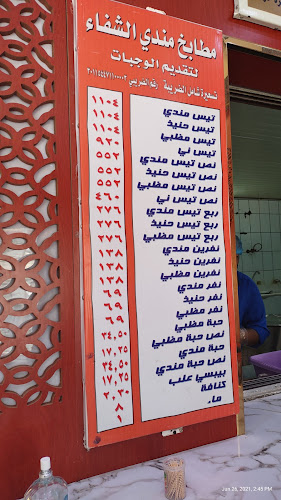 مطابخ مندي الشفاء
لتقديم الوجبات
تسعيرة شامل الضريبة / رقم الضريبي
تيس مندي ١١٠٤
تيس حنيذ ١١٠٤
تيس مظبي ١١٠٤
تيس ني ٩٢٠
نص تيس مندي ٥٥٢
نص تيس حنيذ ٥٥٢
نص تيس مظبي ٥٥٢
نص تيس ني ٤٦٠
ربع تيس مندي ٢٧٦
ربع تيس حنيذ ٢٧٦
ربع تيس مظبي ٢٧٦
نفرين مندي ١٣٨
نفرين حنيذ ١٣٨
نفرين مظبي ١٣٨
نفر مندي ٦٩
نفر حنيذ ٦٩
نفر مظبي ٦٩
حبة مظبي ٣٤,٥٠
نص حبة مظبي ١٧,٢٥
حبة مندي ٣٤,٥٠
نص حبة مندي ١٧,٢٥
بيبسي علب ٢,٣٠
كنافة ٨
ماء ١
Jun 26, 2021, 2:45 PM